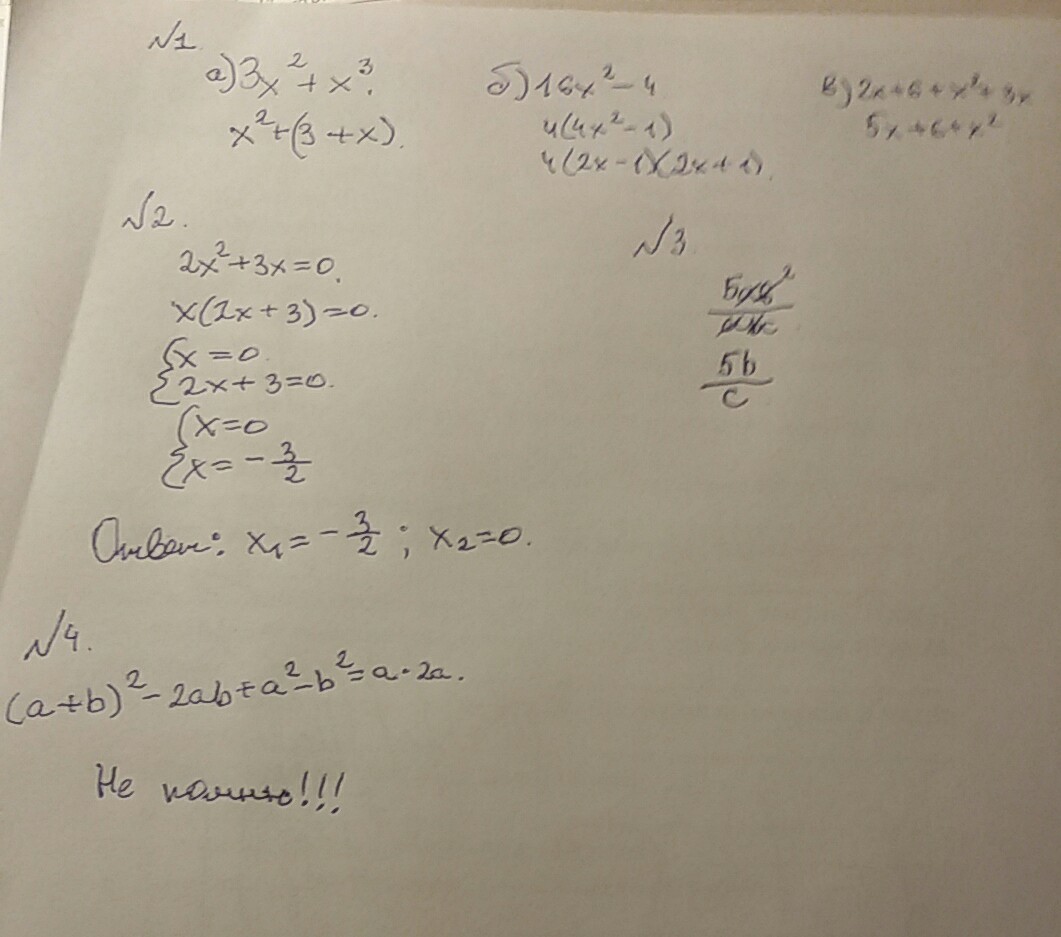 №1.
а) 3x² + x³.
x² + (3 + x).
б) 16x² – 4
4(4x² – 1)
4(2x – 1)(2x + 1).
в) 2x + 6 + x² + 3x
5x + 6 + x²
№2.
2x² + 3x = 0.
x(2x + 3) = 0.
{x = 0.
{2x + 3 = 0.
{x = 0
{x = – 3/2
Ответ: x₁ = – 3/2 ; x₂ = 0.
№3.
5b/c
№4.
(a + b)² – 2ab + a² – b² = a · 2a.
Не помню!!!